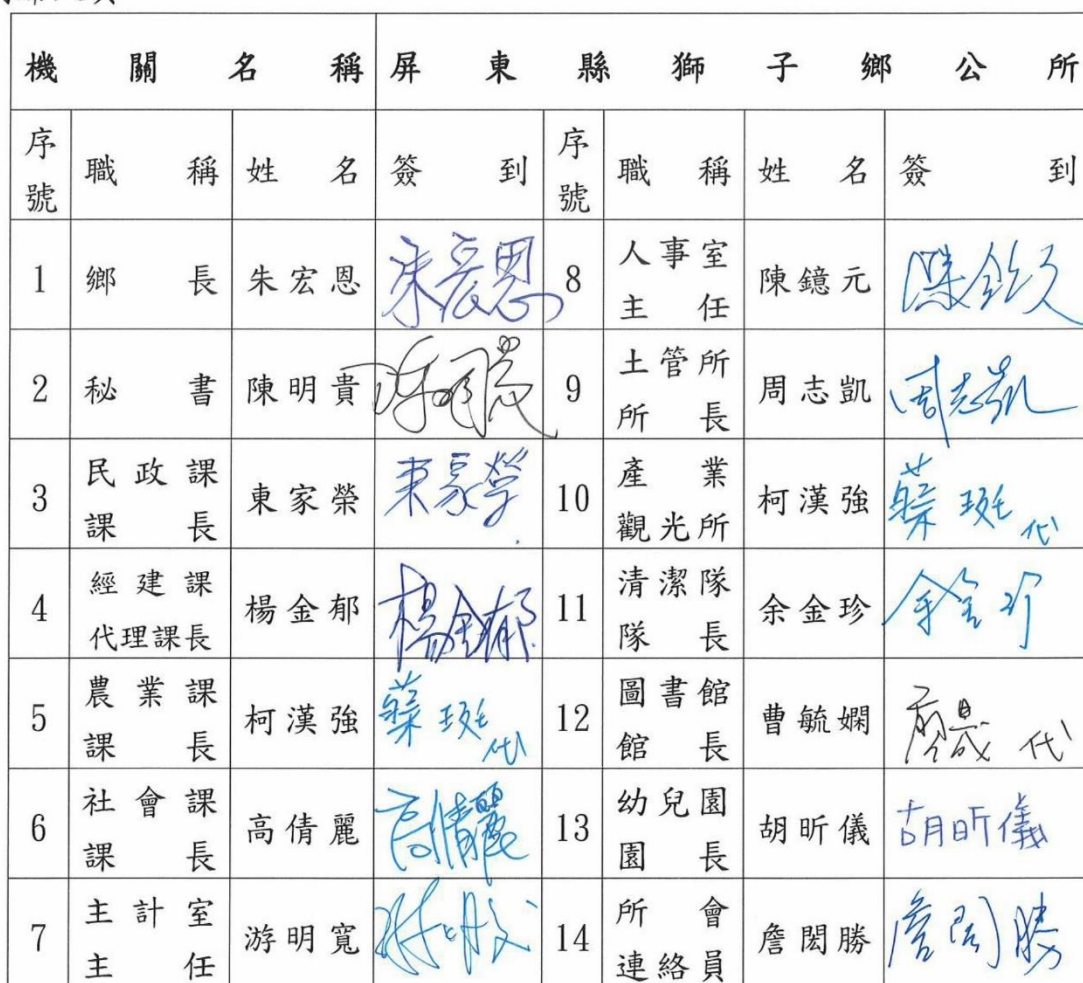 機關名稱 屏東縣獅子鄉公所
序號 職稱 姓名 簽到 序號 職稱 姓名 簽到
1 鄉長 朱宏恩 朱宏恩 8 人事室主任 陳鐿元
2 秘書 陳明貴 9 土管所所長 周志凱 周志凱
3 民政課課長 東家榮 東家榮 10 產業觀光所 柯漢強 代
4 經建課代理課長 楊金郁 楊金郁 11 清潔隊隊長 余金珍 余金珍
5 農業課課長 柯漢強 代 12 圖書館館長 曹毓嫻 代
6 社會課課長 高倩麗 高倩麗 13 幼兒園園長 胡昕儀 胡昕儀
7 主計室主任 游明寬 14 所會連絡員 詹閎勝 詹閎勝